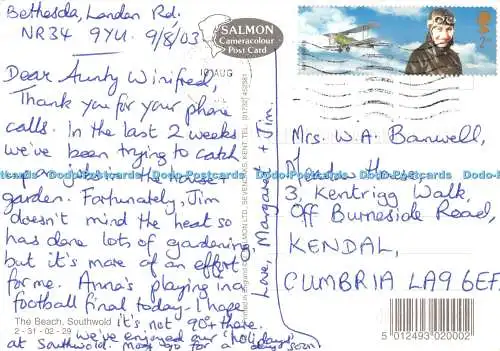 Bethesda, London Rd.
NR34 9YU. 9/8/03
SALMON
Cameracolour
Post Card
AUG
2nd
Dear Aunty Winifred,
Thank you for your phone
calls. In the last 2 weeks
we've been trying to catch
up on jobs in the house +
garden. Fortunately, Jim
doesn't mind the heat so
has done lots of gardening,
but it's more of an effort
for me. Anna's playing in a
football final today - I hope
it's not 90+ there.
we've enjoyed our 'holidays'
at Southwold. May go for a days soon!
Love, Margaret + Jim.
SALMON LTD, SEVENOAKS, KENT, TEL. (01732) 452381
Mrs. W.A. Banwell,
House,
3, Kentrigg Walk,
Off Burneside Road,
KENDAL,
CUMBRIA LA9 6EF.
The Beach, Southwold
2 - 31 - 02 - 29
5 012493 020002
Dodo-Postcards Dodo-Postcards Dodo-Postcards Dodo-Postcards